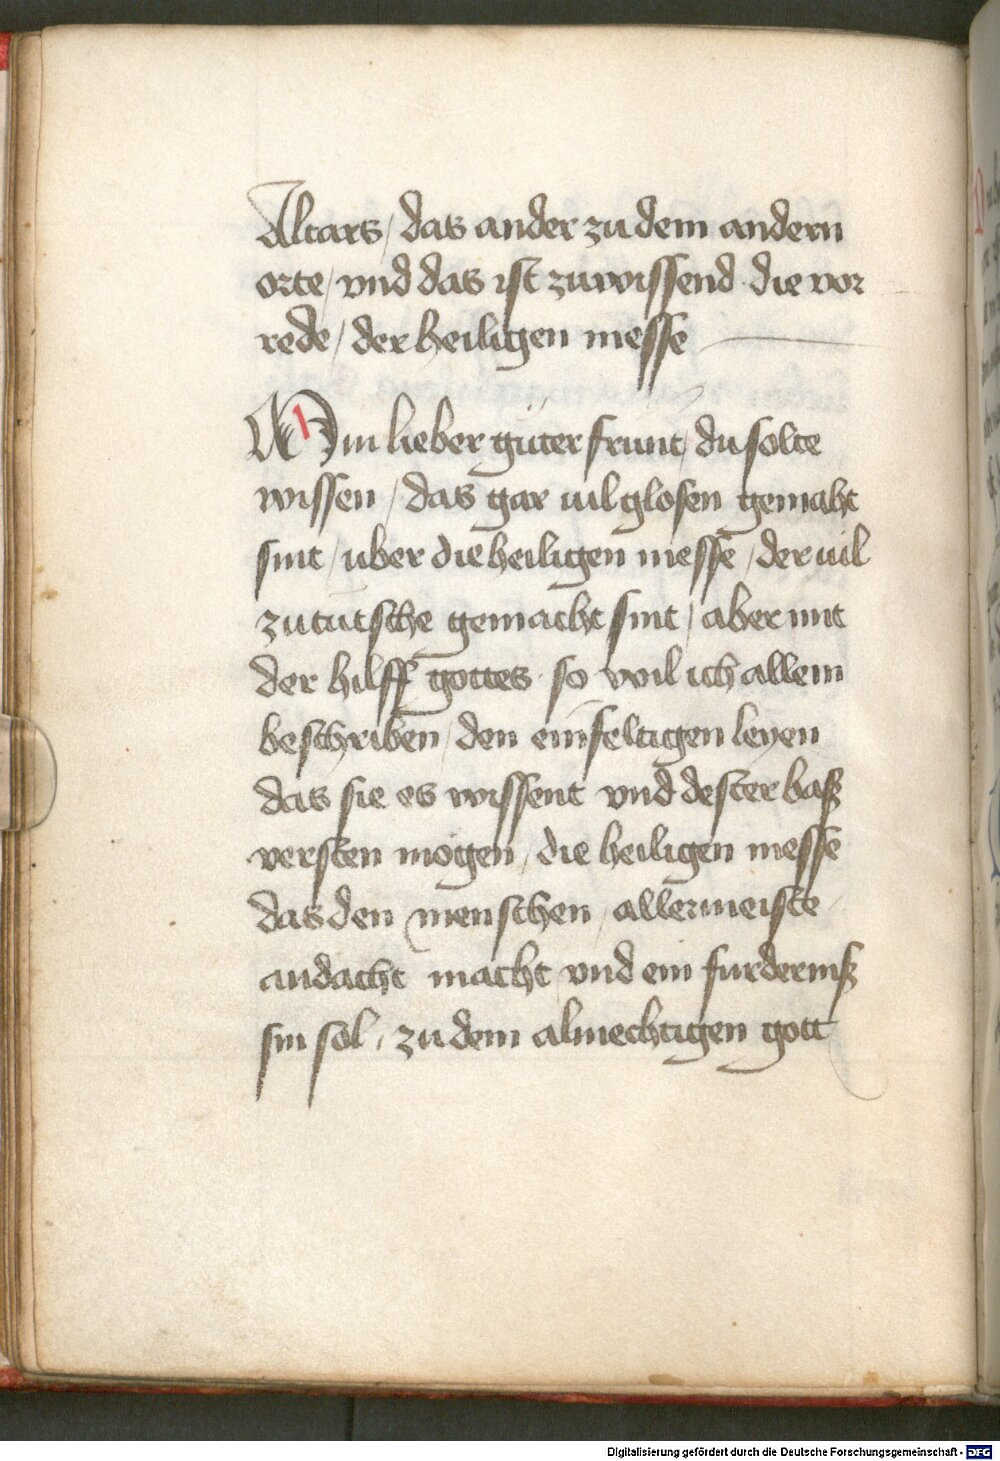 Altars / das ander zu dem andern
orte / vnd das ist zuwissend die vor
rede / der heiligen messe
Min lieber guter frunt / du solte
wissen / das gar uil glosen gemaht
sint / uber die heiligen messe / der uil
zu tutsche gemacht sint / aber mit
der hilff gottes so wil ich allein
beschriben / den einfeltigen leyen
das sie es wissent vnd dester baß
versten mogen / die heiligen messe
das den menschen / allermeiste
andacht macht vnd ein furderniß
sin sol / zu dem almechtigen gott
Digitalisierung gefördert durch die Deutsche Forschungsgemeinschaft - DFG